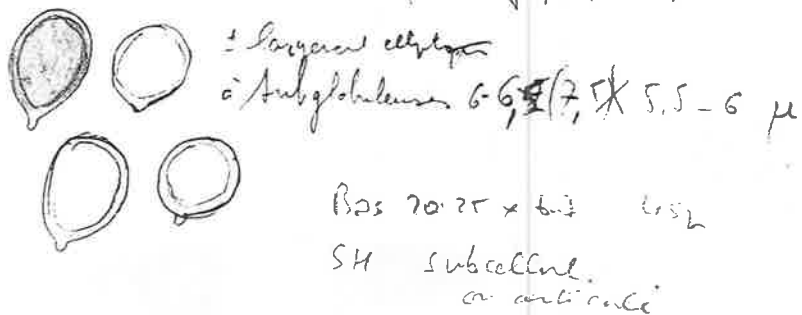 ± largement elliptiques
à subglobuleuses 6-6,5(7,5)X 5,5-6 µ
Bas 20-25 x 6-7
SH subcellul.
ou articulé